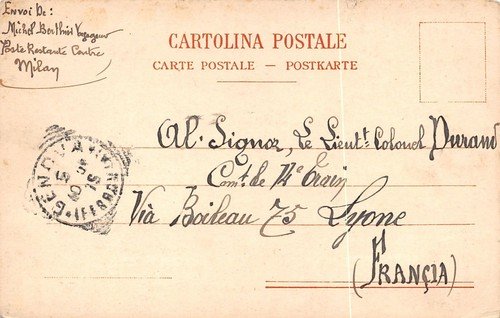 Envoi De:
Michel Berthier Voyageur
Poste Restante Centre
Milan
CARTOLINA POSTALE
CARTE POSTALE — POSTKARTE
GENOVA
(FERROVIA)
Al. Signor, Le Lieut.t Colonel Durand
Comt. de 14e Train
Via Boileau 75 Lyone
(FRANÇIA)